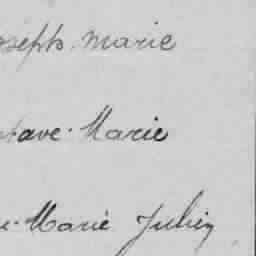 oseph Marie
tave. Marie
e. Marie Julien